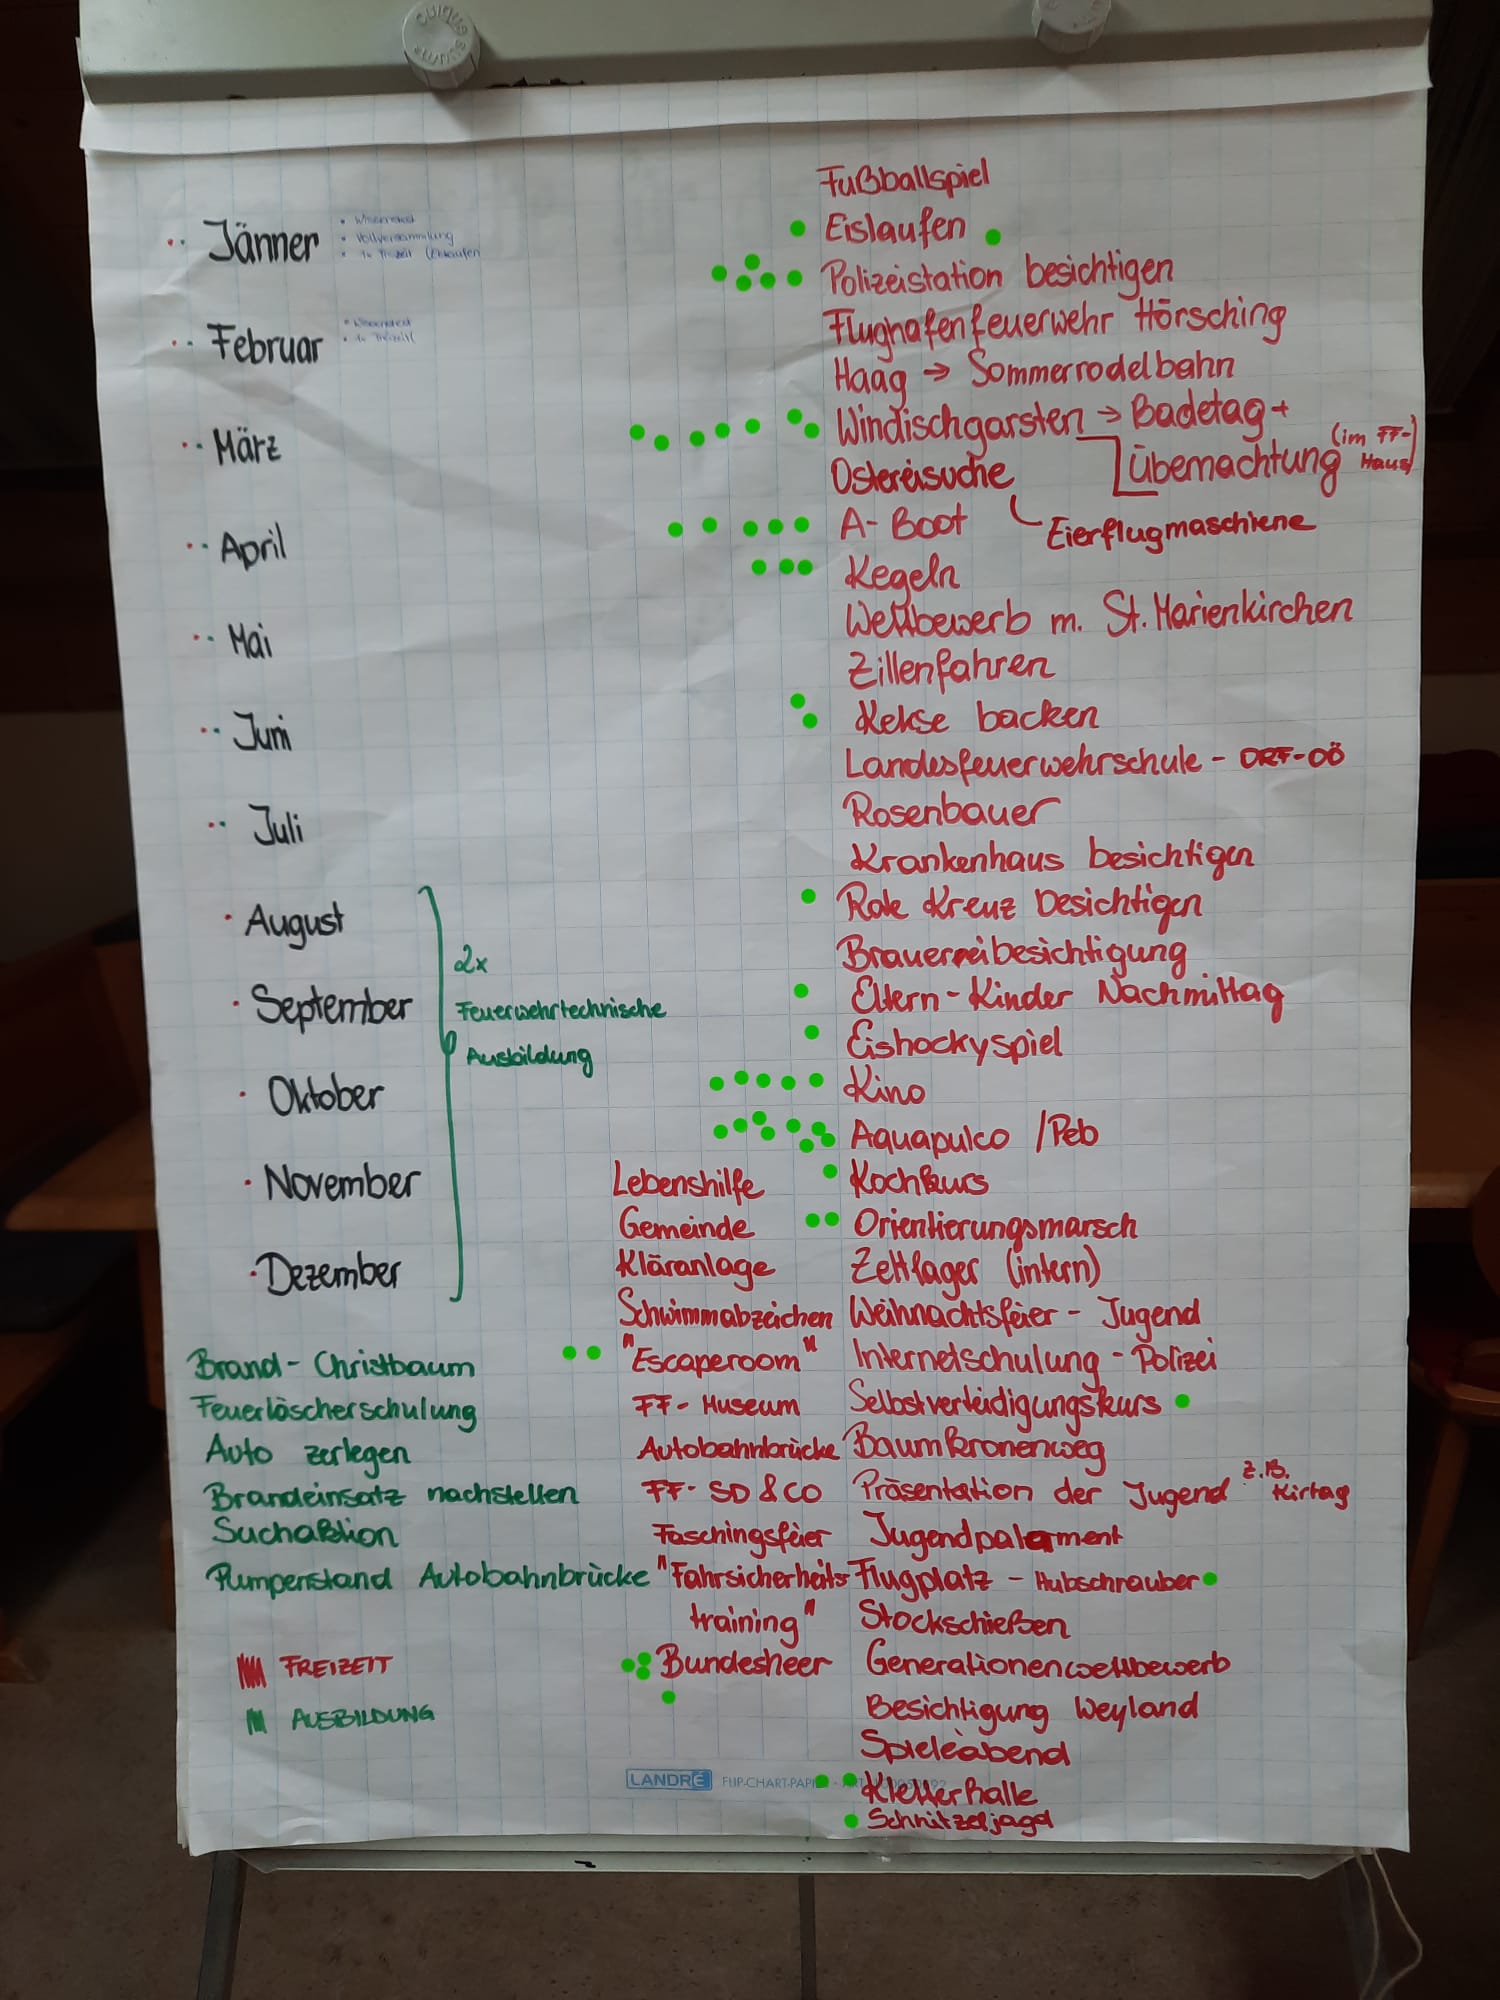 Fußballspiel
Jänner
• Wissenstest
• Vollversammlung
• 1x Freizeit (Eislaufen
Eislaufen
Polizeistation besichtigen
Februar
• Wissenstest
• 1x Freizeit
Flughafenfeuerwehr Hörsching
Haag → Sommerrodelbahn
März
Windischgarsten → Badetag +
Übernachtung (im FF-Haus)
Ostereisuche
Eierflugmaschiene
April
A-Boot
Kegeln
Mai
Wettbewerb m. St. Marienkirchen
Zillenfahren
Juni
Kekse backen
Landesfeuerwehrschule - ORF-OÖ
Juli
Rosenbauer
Krankenhaus besichtigen
August
Rote Kreuz besichtigen
Brauereibesichtigung
September
2x
Feuerwehrtechnische
Ausbildung
Eltern-Kinder Nachmittag
Eishockyspiel
Oktober
Kino
Aquapulco /Peb
November
Lebenshilfe
Kochkurs
Gemeinde
Orientierungsmarsch
Dezember
Kläranlage
Zeltlager (intern)
Schwimmabzeichen
Weihnachtsfeier - Jugend
Brand-Christbaum
"Escaperoom"
Internetschulung - Polizei
Feuerlöscherschulung
FF-Museum
Selbstverteidigungskurs
Auto zerlegen
Autobahnbrücke
Baumkronenweg
Brandeinsatz nachstellen
FF-SD & CO
Präsentation der Jugend z.B. Kirtag
Suchaktion
Faschingsfeier
Jugendpalarment
Pumpenstand Autobahnbrücke
"Fahrsicherheits-
training"
Flugplatz - Hubschrauber
Stockschießen
FREIZEIT
Bundesheer
Generationenwettbewerb
AUSBILDUNG
Besichtigung Weyland
Spieleabend
LANDRÉ FLIP-CHART-PAPI
Kletterhalle
Schnitzeljagd